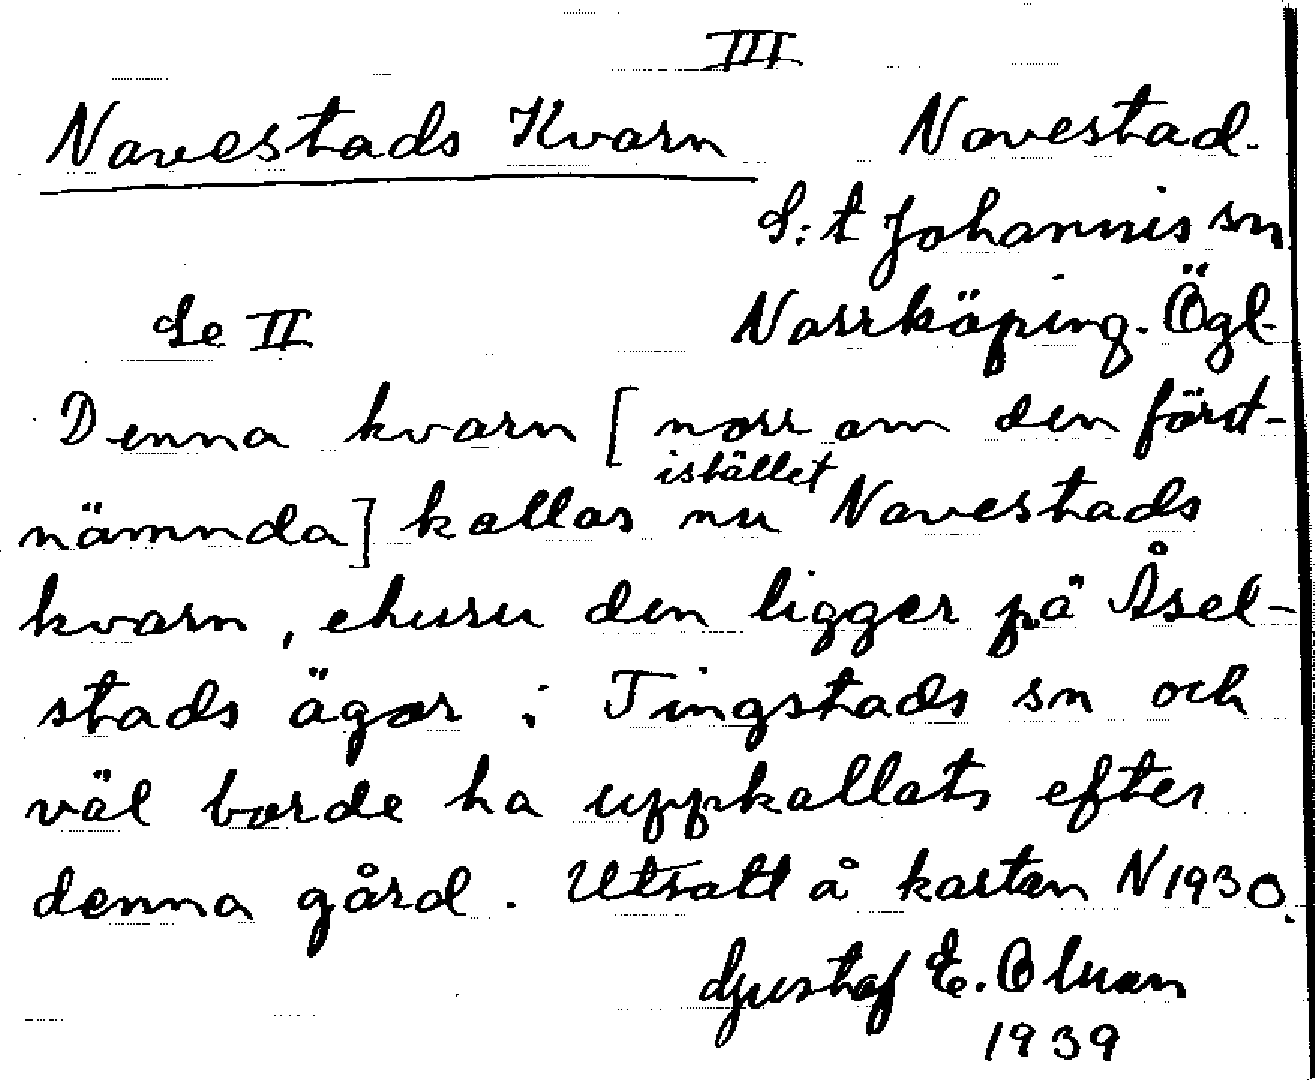 III
Navestads Kvarn Navestad.
S:t Johannis sn
Se II Norrköping. Ögl.
Denna kvarn [norr om den först-
nämnda] kallas nu istället Navestads
kvarn, ehuru den ligger på Åsel-
stads ägor i Tingstads sn och
väl borde ha uppkallats efter
denna gård. Utsatt å kartan N 1930.
Gustaf E.
1939